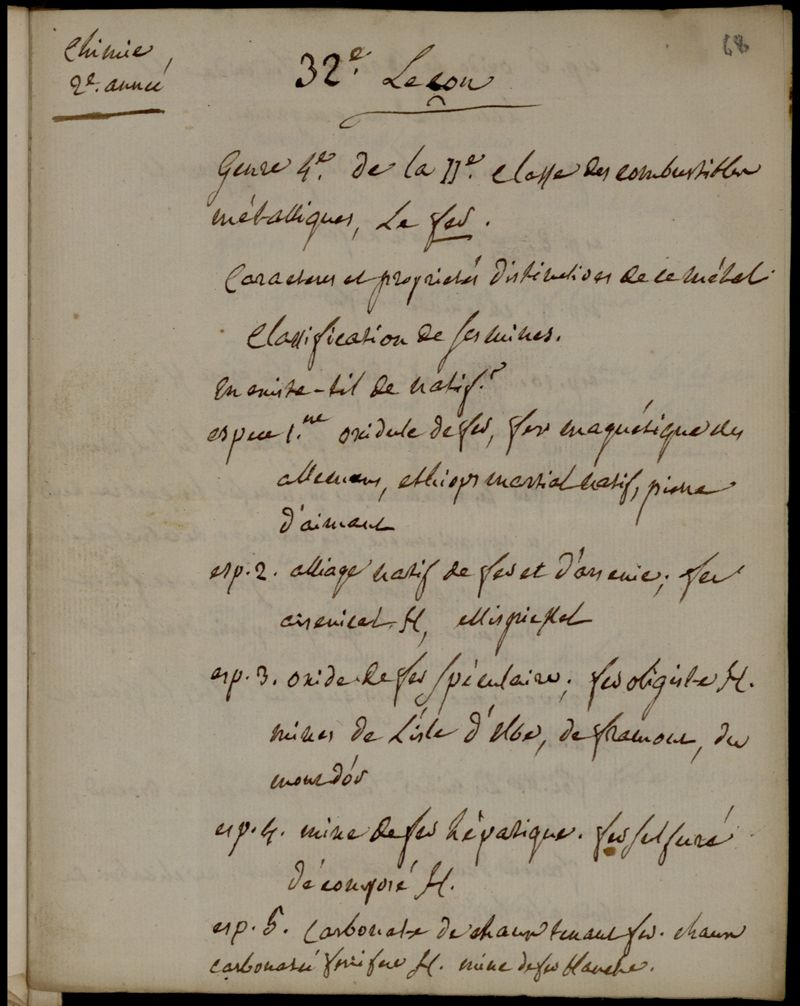 68
Chimie,
2e. année
32e. Leçon
Genre 4e. de la IIe. classe des combustibles
métalliques, Le fer.
Caracteres et proprietés distinctives de ce métal
Classification de ses mines.
En existe-til de natif?
espece 1.ere oxidule de fer, fer magnétique des
allemans, ethiops martial natif, pierre
d'aimant
esp. 2. alliage natif de fer et d'arsenic; fer
arsenical H, mispickel
esp. 3. oxide de fer spéculaire; fer oligiste H.
mines de L'isle d'Elbe, de framont, du
mont d'or
esp. 4. mine de fer hépatique. fer sulfuré
décomposé H.
esp. 5. Carbonate de chaux tenant fer. chaux
carbonatée ferrifere H. mine de fer blanche.